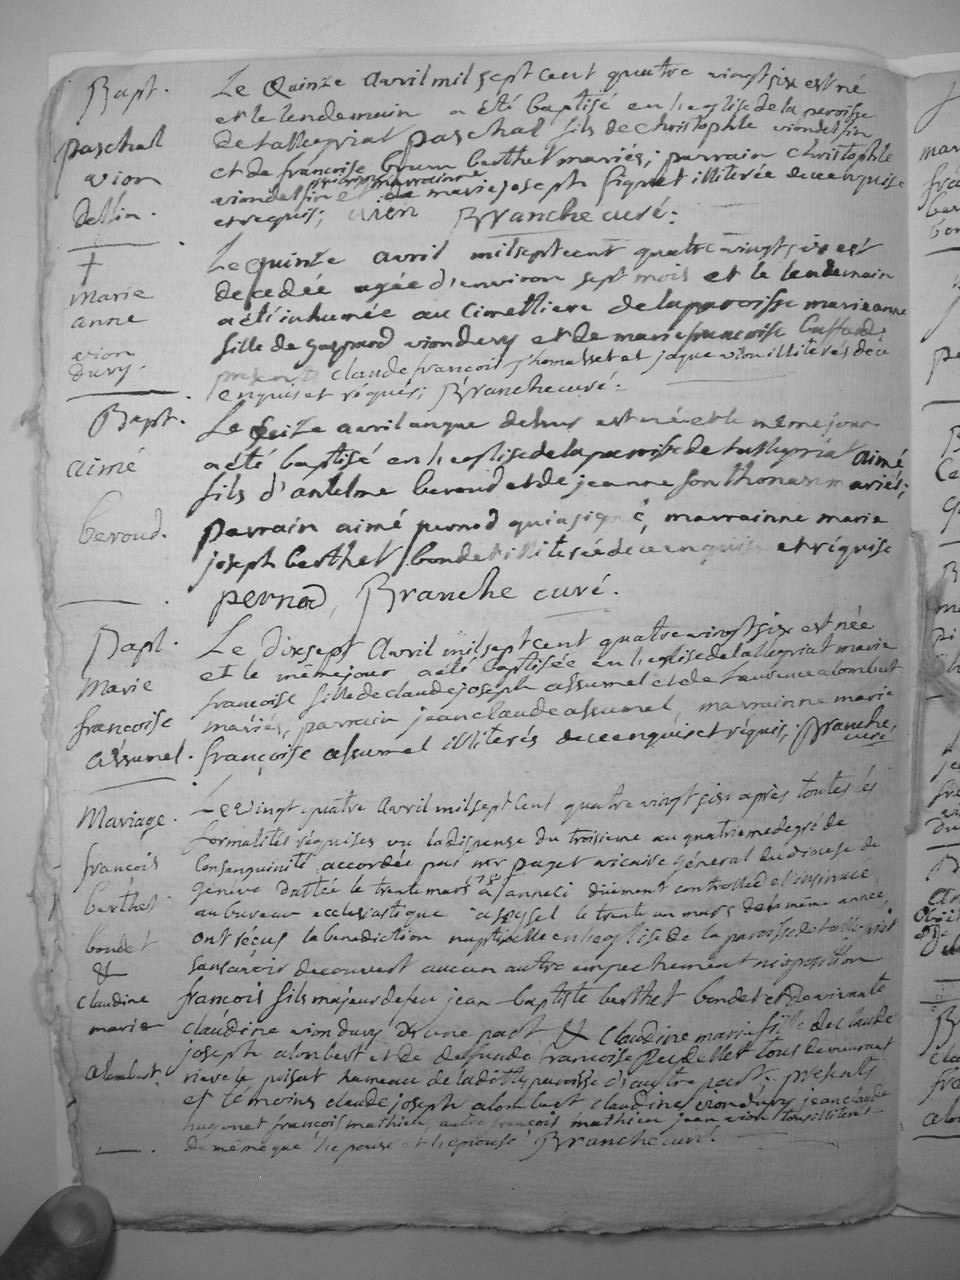 Bapt.
paschal
vion
dellin.
Le Quinze avril mil sept cent quatre vingt six est né
et le lendemain a été baptisé en l'eglise de la paroisse
de tallegriat paschal fils de christophle vion dellin
et de françoise brun berthet mariés; parrain christophle
viondellin et marrainne marie joseph illiterée de ce enquise
et requis; vion Branche curé.
†
marie
anne
vion
dury.
Le quinze avril mil sept cent quatre vingt six est
decedée agée d'environ sept mois et le lendemain
a été inhumée au cimettiere de la paroisse marie anne
fille de gaspard vion dury et de marie françoise
presents claude françois et jaque vion illiterés de ce
enquis et réquis; Branche curé.
Bapt.
aimé
beroud.
Le seize avril an que dessus est né et le même jour
a été baptisé en l'eglise de la paroisse de tallegriat aimé
fils d'antelme beroud et de jeanne sonthonax mariés;
parrain aimé pernod qui a signé, marrainne marie
joseph berthet bondet illiterée de ce enquise et réquise
pernod, Branche curé.
Bapt.
Marie
françoise
assumel.
Le dixsept Avril mil sept cent quatre vingt six est née
et le même jour a été baptisée en l'eglise de tallegriat marie
françoise fille de claude joseph assumel et de laurence alombert
mariés, parrain jean claude assumel, marrainne marie
françoise assumel illiterés de ce enquis et réquis; Branche
curé
Mariage.
françois
berthet
bondet
&
claudine
marie
alombert.
Le vingt quatre Avril mil sept cent quatre vingt six après toutes les
formalités réquises vu la dispense du troisieme au quatrieme degré de
consanguinité accordée par mr puget vicaire général du diocese de
Géneve dattée le trente mars à anneci düement controlled et insinuée
au bureau ecclesiastique a seyssel le trente un mars de la même année,
ont réçus la benediction nuptialle en l'eglise de la paroisse de tallegriat
sans avoir decouvert aucun autre empechement ni opposition
françois fils majeur de feu jean-baptiste berthet bondet et de vivante
claudine vion dury d'une part & claudine marie fille de claude
joseph alombert et de defunte françoise perdellet tous demeurant
rieve le poisat hameau de la ditte paroisse d'autre part. presents
et temoins claude joseph alombert claudine vion dury jean claude
hugonet françois mathieu, autre françois mathieu jean vion tous illiterés
de même que l'epoux et l'epouse Branche curé.